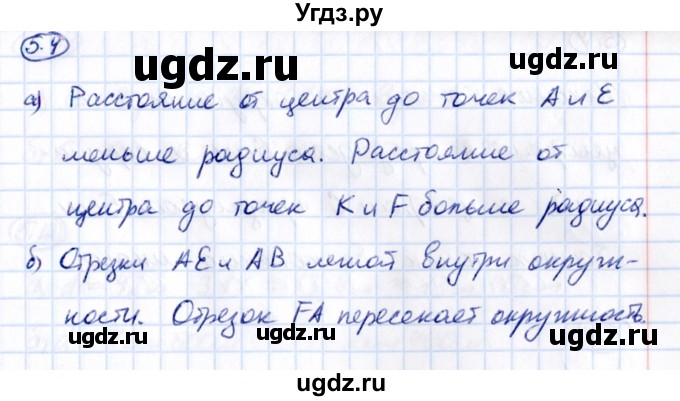 Угдз.ру
5.4
ugdz.ru
ugdz.ru
а) Расстояние от центра до точек А и Е
меньше радиуса. Расстояние от
ugdz.ru
центра до точек К и F больше радиуса.
б) Отрезки АЕ и АВ лежат внутри окруж-
ности. Отрезок FA пересекает окружность.
ugdz.ru
ugdz.ru
ugdz.ru